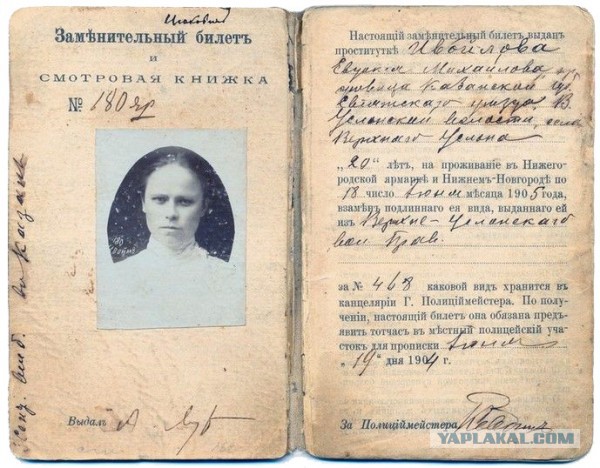 Замѣнительный билетъ
и
СМОТРОВАЯ КНИЖКА
№ 180 яр
Выдалъ
въ Казань
Настоящій замѣнительный билетъ выданъ
проституткѣ
Евдокія Михайлова
Казанской губ.
уѣзда, В.
Услонской волости, села
Верхняго Услона
„20" лѣтъ, на проживаніе въ Нижего-
родской ярмаркѣ и Нижнемъ-Новгородѣ по
18 число Іюня мѣсяца 1905 года,
взамѣнъ подлиннаго ея вида, выданнаго ей
изъ Верхне-Услонскаго
вол Прав.
за № 468 каковой видъ хранится въ
канцеляріи Г. Полиціймейстера. По полу-
ченіи, настоящій билетъ она обязана предъ-
явить тотчасъ въ мѣстный полицейскій уча-
стокъ для прописки Іюня
„19" дня 1904 г.
За Полиціймейстера
YAPLAKAL.COM